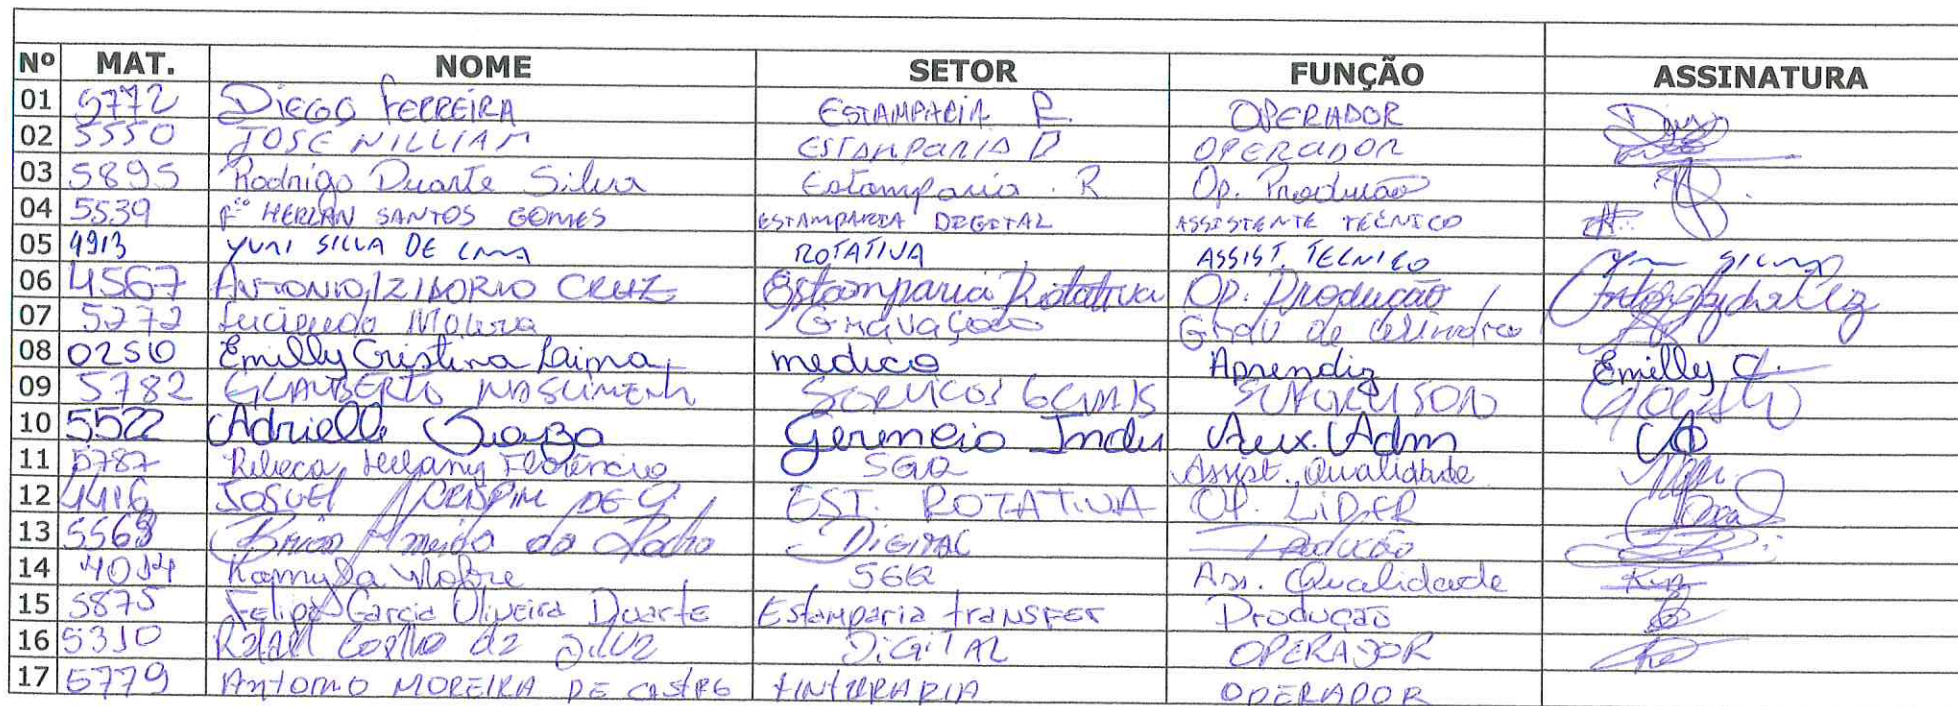 Nº MAT. NOME SETOR FUNÇÃO ASSINATURA
01 5772 DIEGO FERREIRA ESTAMPARIA R. OPERADOR Diego
02 5550 JOSE WILLIAM ESTAMPARIA D OPERADOR
03 5895 Rodrigo Duarte Silva Estamparia R Op. Produção
04 5539 Fco HERLAN SANTOS GOMES ESTAMPARIA DIGITAL ASSISTENTE TECNICO
05 4913 YURI SILVA DE LIMA ROTATIVA ASSIST. TECNICO
06 4567 ANTONIO IZIDORIO CRUZ Estamparia Rotativa Op. Produção
07 5272 Lucineudo Moura Gravação Grav de Cilindro
08 0250 Emilly Cristina Laima medico Aprendiz Emilly C.
09 5782 GLAUBERTO NASCIMENTO SERVICOS GERAIS SUPERVISOR
10 5522 Adrielle Souza Gerencia Indus Aux. Adm
11 5787 Rebeca Hellany Florêncio SGQ Assist. Qualidade
12 4416 JOSUEL CRISPIM DE EST. ROTATIVA OP. LIDER
13 5563 Brian Almeida da Rocha DIGITAL Producão
14 4014 Kamyla Nobre SGQ Ass. Qualidade
15 5875 Felipe Garcia Oliveira Duarte Estamparia transfer Produçao
16 5310 Rafael Coelho da Silva DIGITAL OPERADOR
17 5779 ANTONIO MOREIRA DE CASTRO TINTURARIA OPERADOR